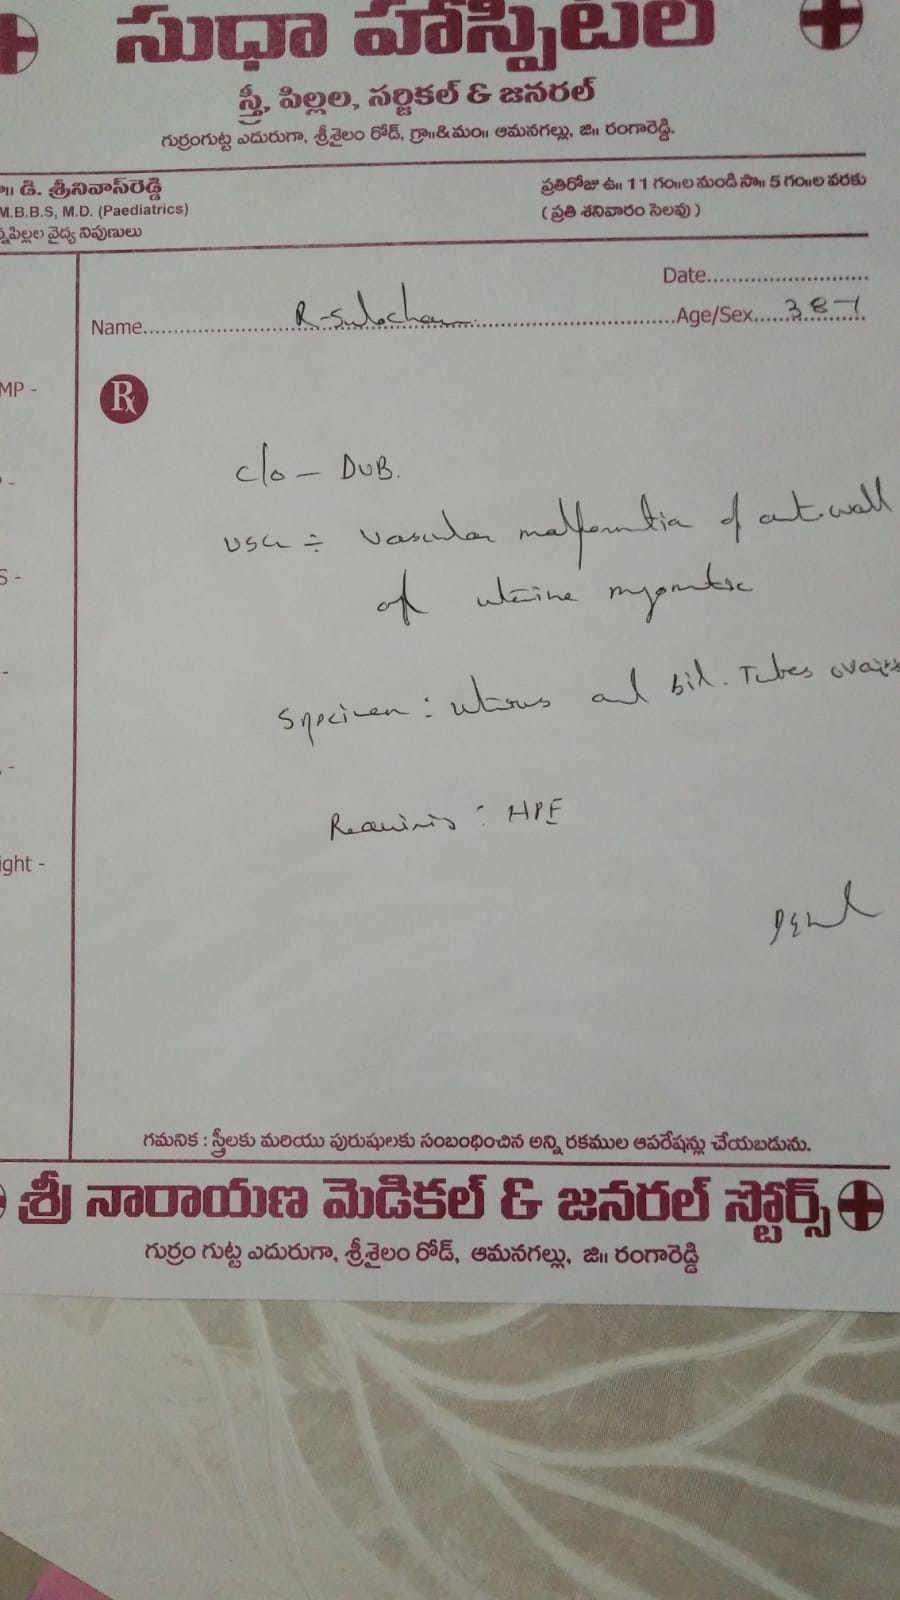 సుధా హాస్పిటల్
స్త్రీ, పిల్లల, సర్జికల్ & జనరల్
గుర్రంగుట్ట ఎదురుగా, శ్రీశైలం రోడ్, గ్రా॥&మం॥ ఆమనగల్లు, జి॥ రంగారెడ్డి.
డి. శ్రీనివాస్‌రెడ్డి
M.B.B.S, M.D. (Paediatrics)
వైద్య నిపుణులు
ప్రతిరోజు ఉ॥ 11 గం॥ల నుండి సా॥ 5 గం॥ల వరకు
( ప్రతి శనివారం సెలవు )
Date
Name
Age/Sex 38
MP -
S -
ight -
Rx
c/o - DUB.
USG ÷ vascular malformation of ant. wall
of uterine
Specimen : uterus and bil. Tubes
Requires : HPE
గమనిక : స్త్రీలకు మరియు పురుషులకు సంబంధించిన అన్ని రకముల ఆపరేషన్లు చేయబడును.
శ్రీ నారాయణ మెడికల్ & జనరల్ స్టోర్స్
గుర్రం గుట్ట ఎదురుగా, శ్రీశైలం రోడ్, ఆమనగల్లు, జి॥ రంగారెడ్డి